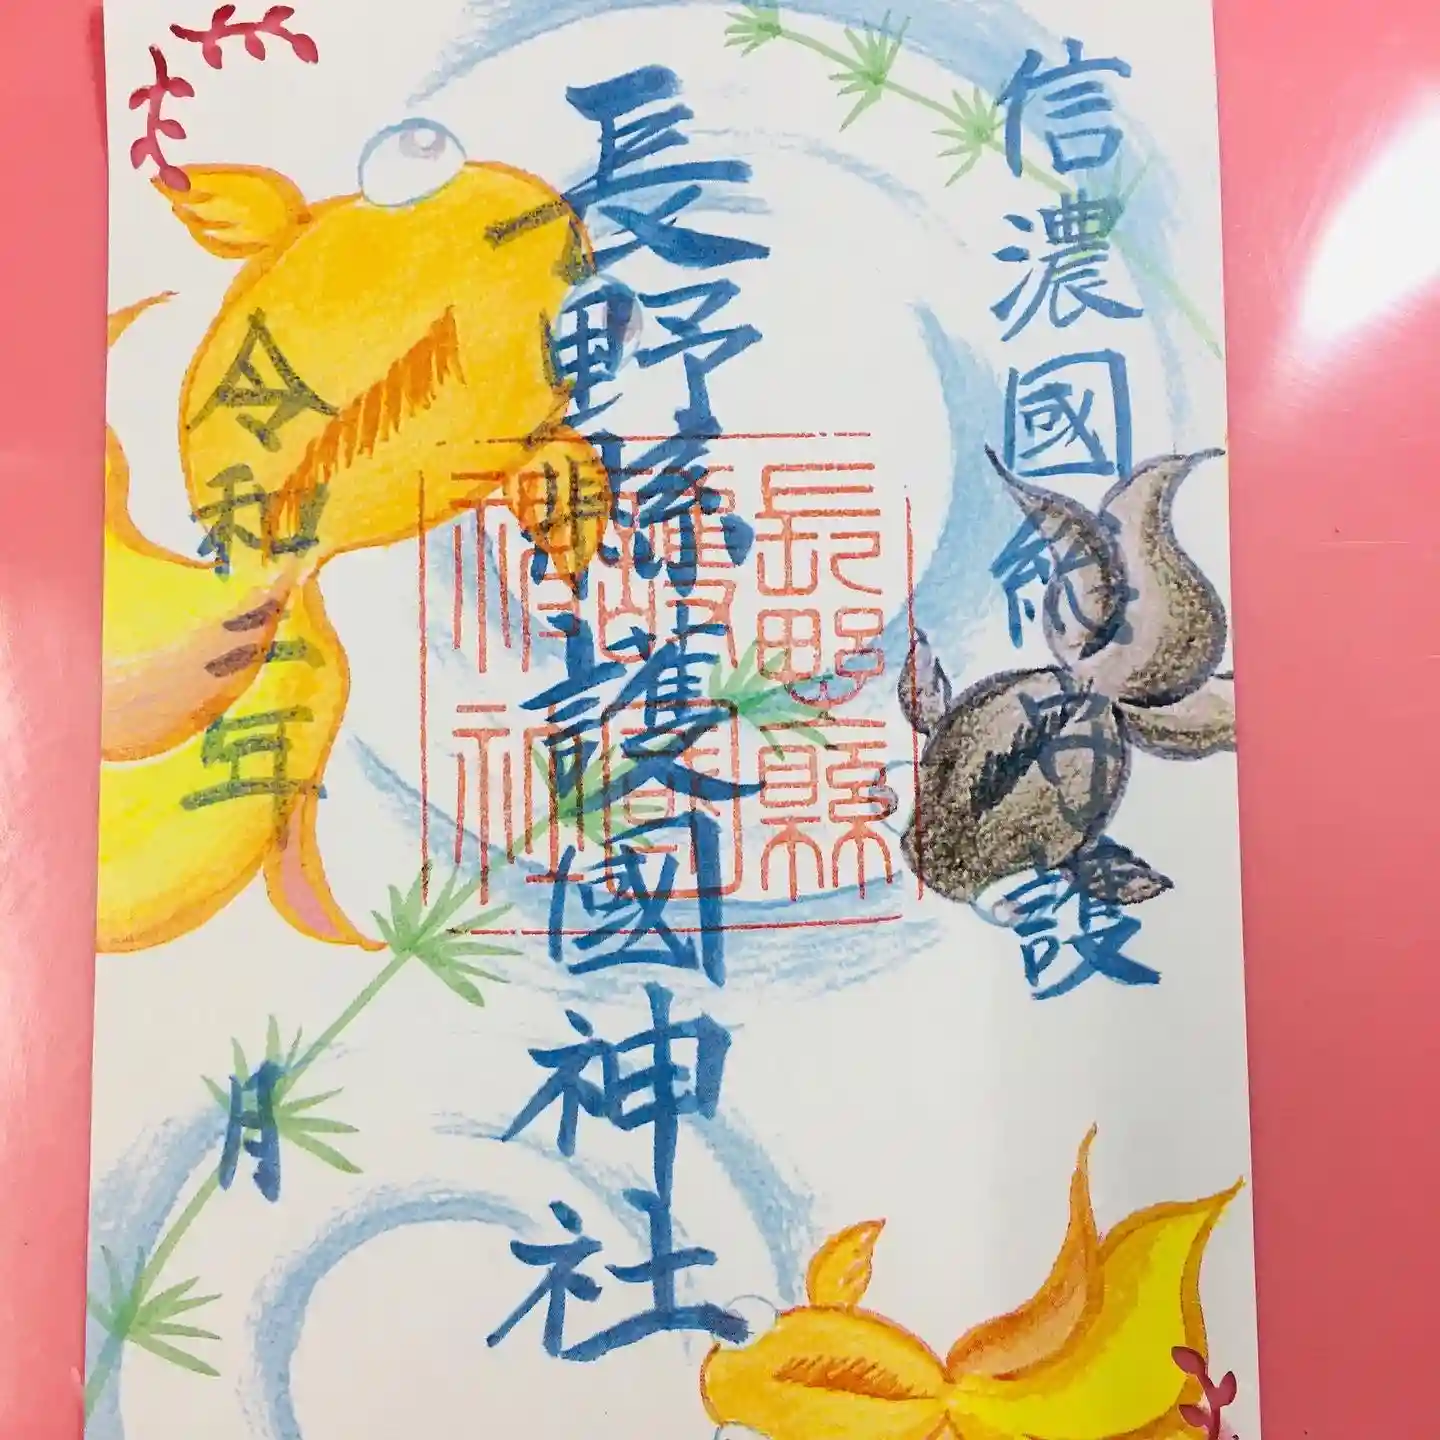 信濃國総守護
長野縣護國神社
長野縣
護國
神社
令和三年
月